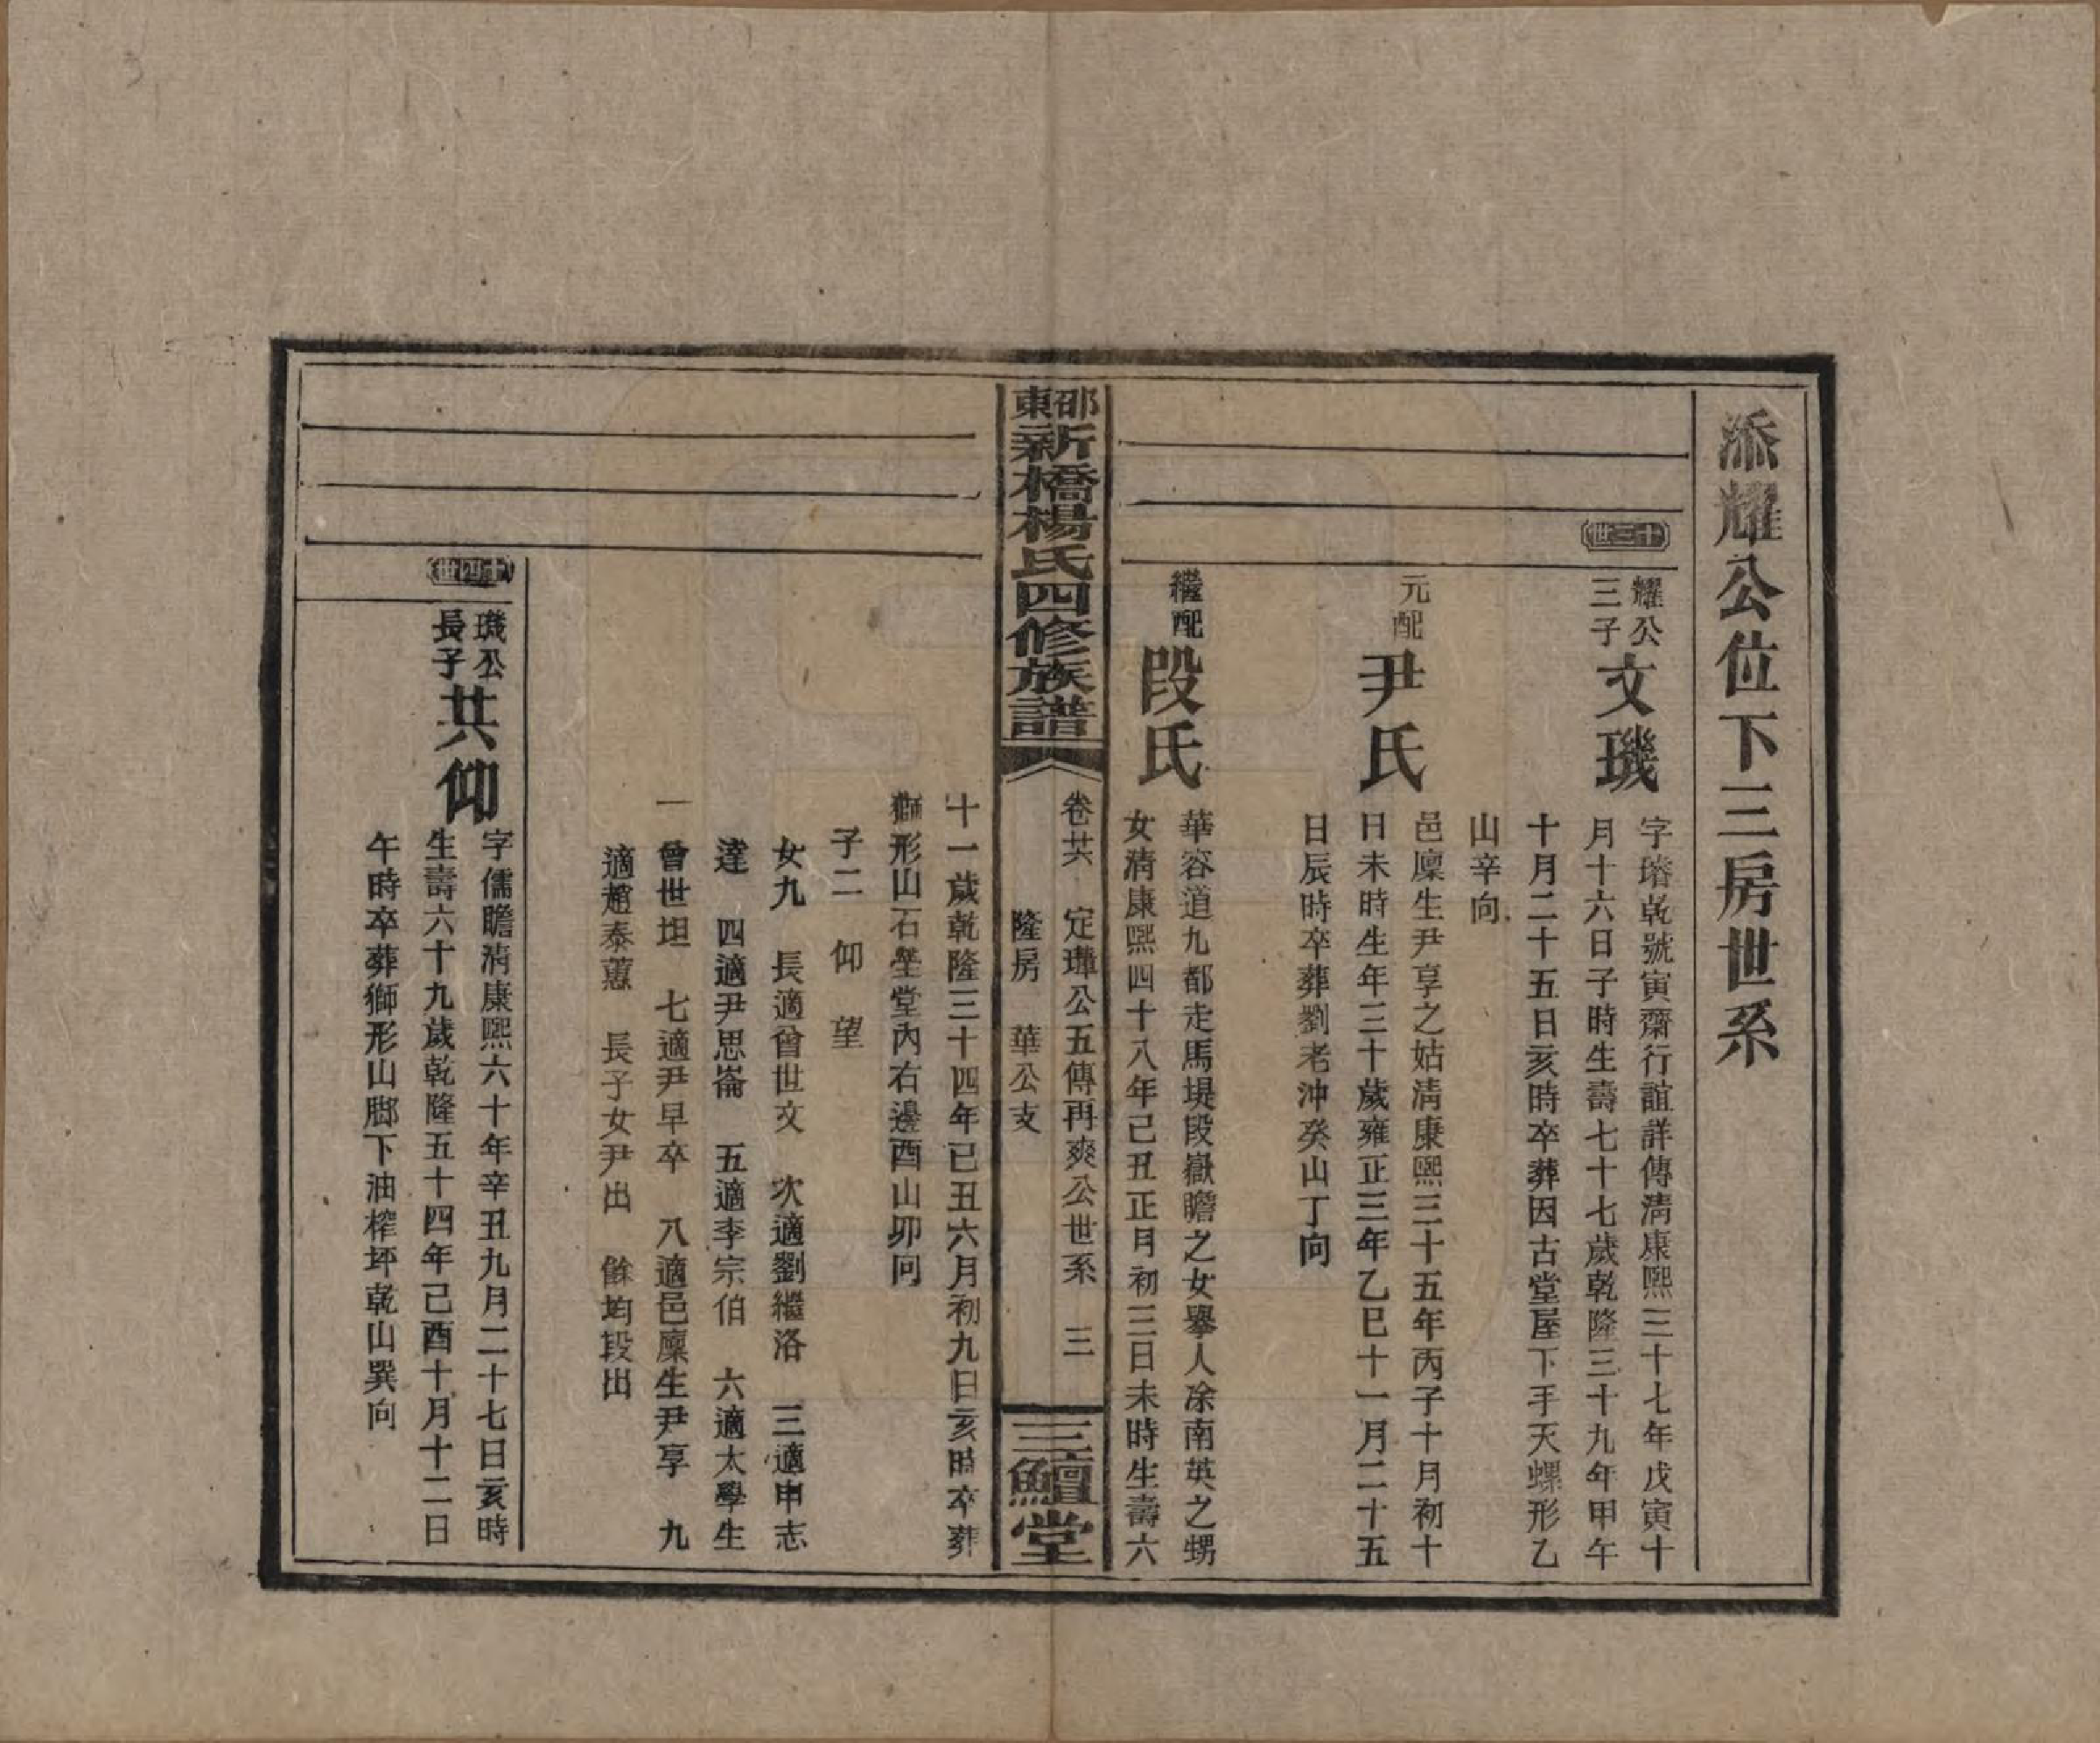 添耀公位下三房世系
十三世
耀公
三子
文璣
字璿乾號寅齋行誼詳傳淸康熙三十七年戊寅十
月十六日子時生壽七十七歲乾隆三十九年甲午
十月二十五日亥時卒葬因古堂屋下手天螺形乙
山辛向
元配
尹氏
邑廩生尹享之姑淸康熙三十五年丙子十月初十
日未時生年三十歲雍正三年乙巳十一月二十五
日辰時卒葬劉老沖癸山丁向
繼配
段氏
華容道九都走馬堤段嶽瞻之女擧人凃南英之甥
女淸康熙四十八年己丑正月初三日未時生壽六
邵東新橋楊氏四修族譜
卷廿六 定璍公五傳再爽公世系 三
隆房 華公支
三鱣堂
十一歲乾隆三十四年己丑六月初九日亥時卒葬
獅形山石壆堂內右邊酉山卯向
子二 仰 望
女九 長適曾世文 次適劉繼洛 三適申志
達 四適尹思崙 五適李宗伯 六適太學生
曾世坦 七適尹早卒 八適邑廩生尹享 九
一
適趙泰蕙 長子女尹出 餘均段出
十四世
璣公
長子
共仰
字儒瞻淸康熙六十年辛丑九月二十七日亥時
生壽六十九歲乾隆五十四年己酉十月十二日
午時卒葬獅形山脚下油榨坪乾山巽向